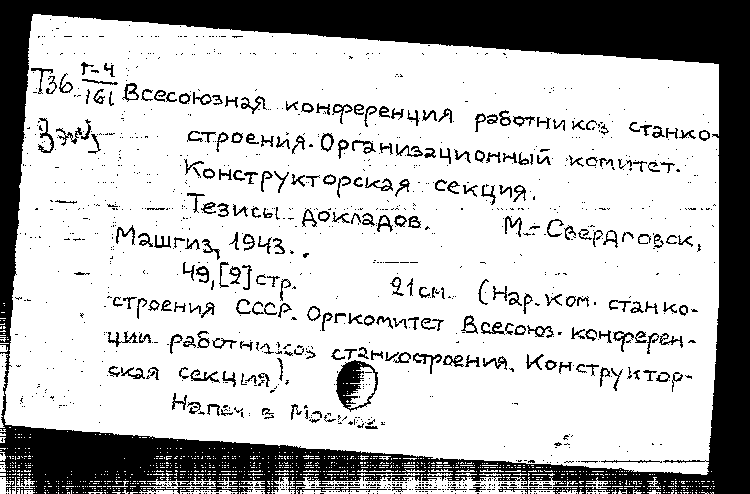 Т36 Г-4
161
Всесоюзная конференция работников станко-
строения. Организационный комитет.
Конструкторская секция.
Тезисы докладов. М.-Свердловск,
Машгиз, 1943.
49, [2] стр. 21 см. (Нар. ком. станко-
строения СССР. Оргкомитет Всесоюз. конферен-
ции работников станкостроения. Конструктор-
ская секция).
Напеч. в Москве.